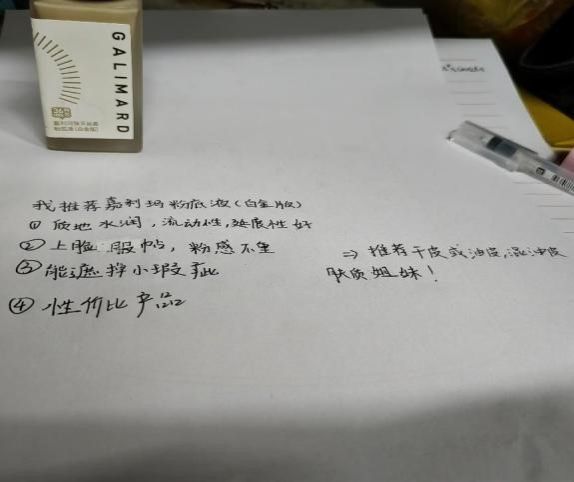 GALIMARD
粉底液(白金版)
我推荐嘉利玛粉底液(白金版)
① 质地水润,流动性,延展性好
② 上脸服帖,粉感不重
③ 能遮掉小瑕疵
④ 性价比产品
⇒ 推荐干皮或油皮,混油皮
肤质姐妹!